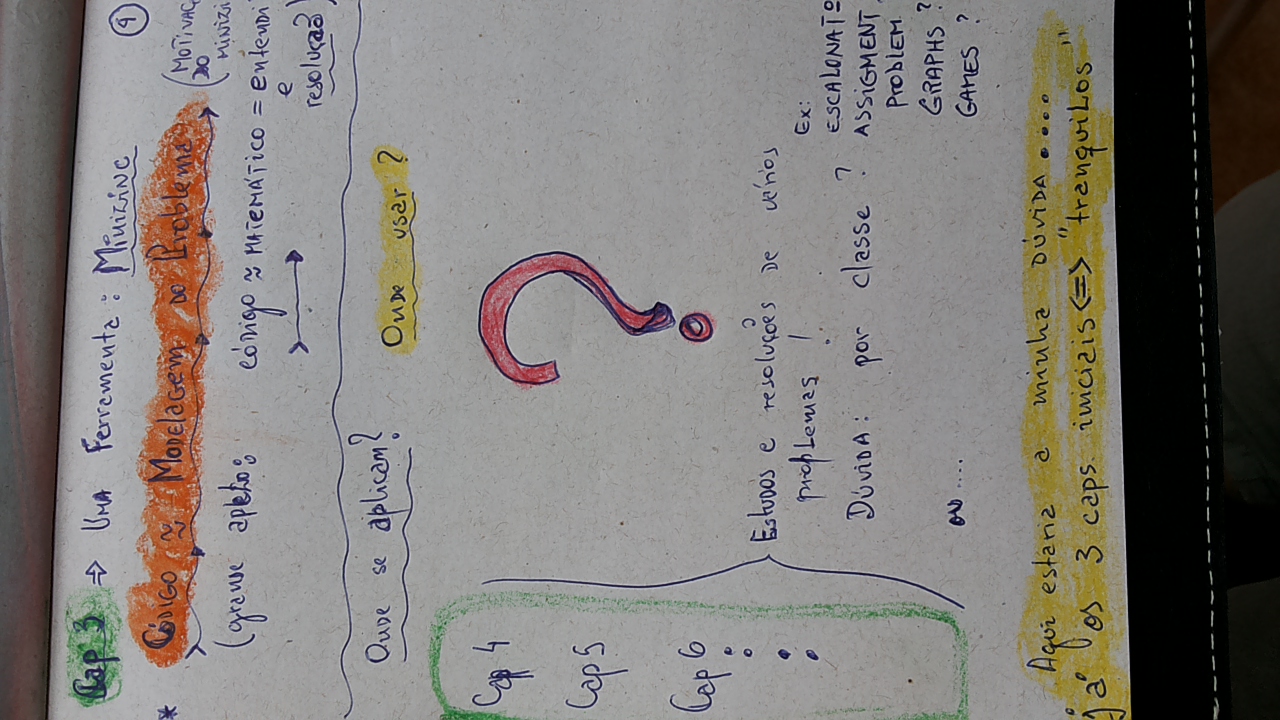 ④
Cap 3 ⇒ Uma Ferramenta: Minizinc
* Código ≈ Modelagem do Problema (Motivaç
do minizi
(grande apelo: código ≈ matemático = entendi
e
resolução)
Onde se aplicam? Onde usar?
?
Cap 4
Cap 5
Cap 6
Estudos e resoluções de vários
problemas!
Dúvida: por classe?
ou....
Ex:
ESCALONATO
ASSIGMENT
PROBLEM
GRAPHS?
GAMES?
Aqui estaria a minha dúvida....
já os 3 caps. iniciais <=> "tranquilos"